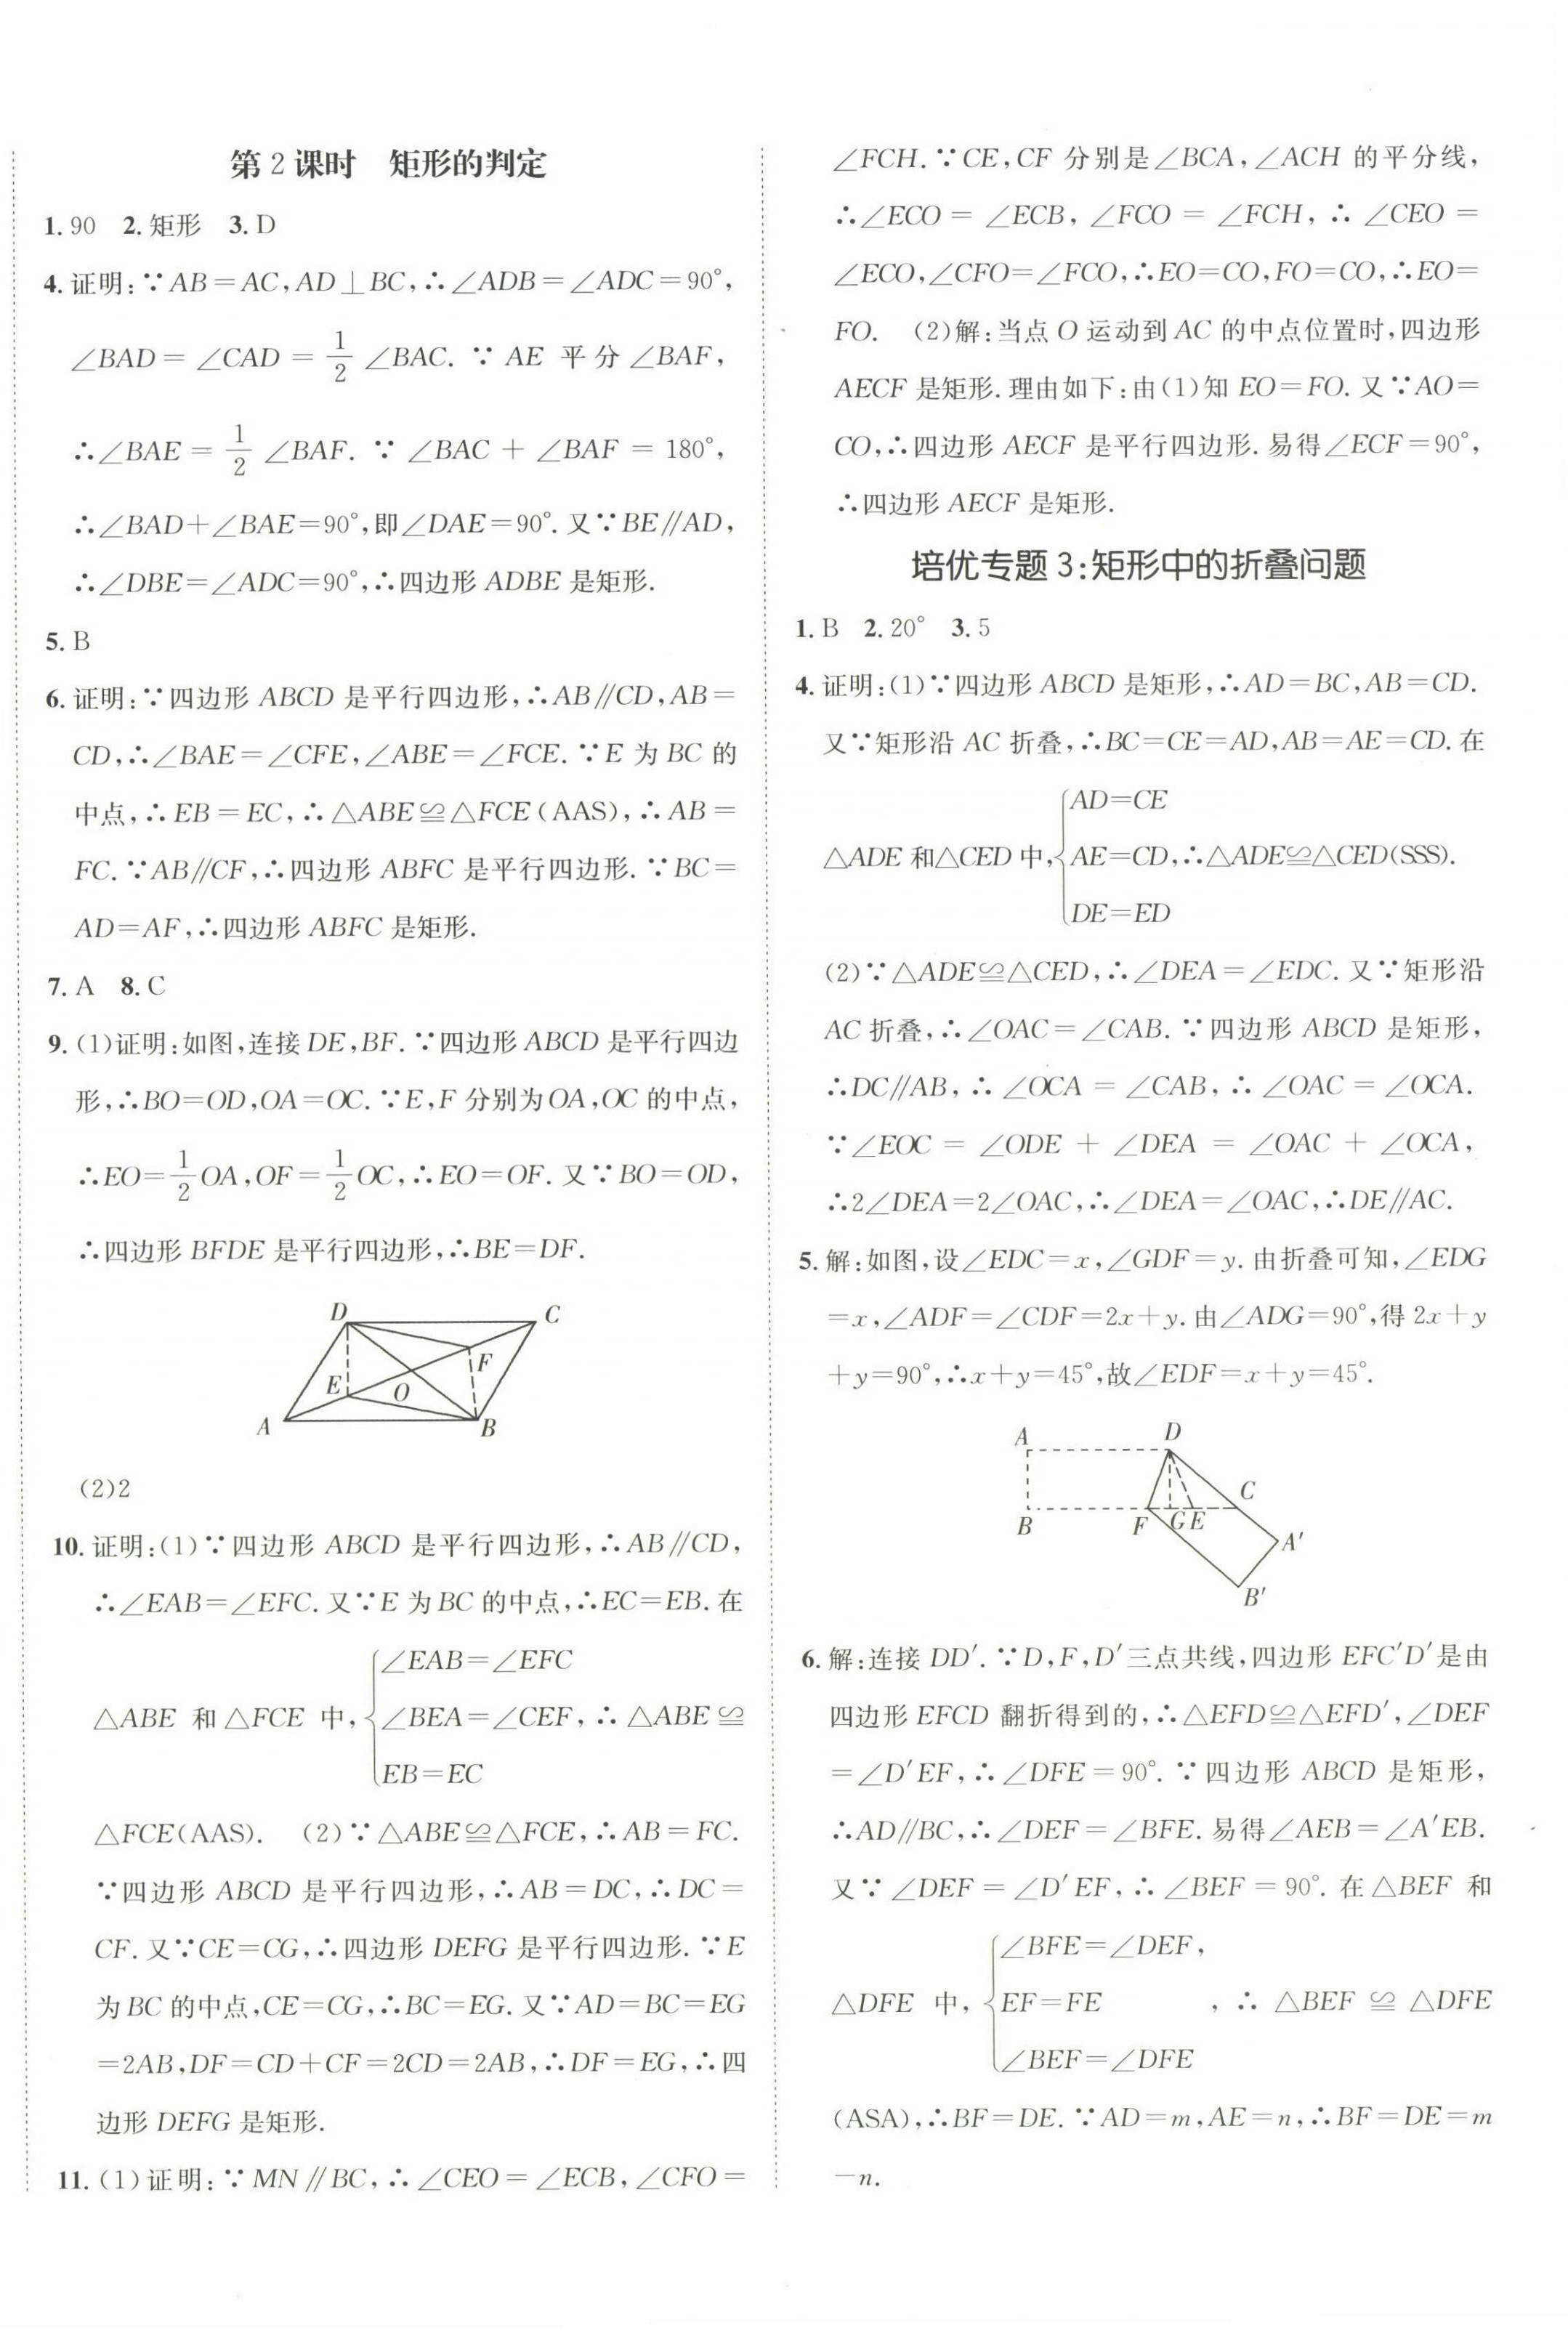 第2课时　矩形的判定
1. 90　2. 矩形　3. D
4. 证明:∵AB=AC,AD⊥BC,∴∠ADB=∠ADC=90°,
∠BAD=∠CAD=1/2∠BAC.∵AE 平分∠BAF,
∴∠BAE=1/2∠BAF.∵∠BAC+∠BAF=180°,
∴∠BAD+∠BAE=90°,即∠DAE=90°.又∵BE∥AD,
∴∠DBE=∠ADC=90°,∴四边形 ADBE 是矩形.
5. B
6. 证明:∵四边形 ABCD 是平行四边形,∴AB∥CD,AB=
CD,∴∠BAE=∠CFE,∠ABE=∠FCE.∵E 为 BC 的
中点,∴EB=EC,∴△ABE≌△FCE(AAS),∴AB=
FC.∵AB∥CF,∴四边形 ABFC 是平行四边形.∵BC=
AD=AF,∴四边形 ABFC 是矩形.
7. A　8. C
9. (1)证明:如图,连接 DE,BF.∵四边形 ABCD 是平行四边
形,∴BO=OD,OA=OC.∵E,F 分别为 OA,OC 的中点,
∴EO=1/2OA,OF=1/2OC,∴EO=OF.又∵BO=OD,
∴四边形 BFDE 是平行四边形,∴BE=DF.
D C
F
E O
A B
(2)2
10. 证明:(1)∵四边形 ABCD 是平行四边形,∴AB∥CD,
∴∠EAB=∠EFC.又∵E 为 BC 的中点,∴EC=EB.在
∠EAB=∠EFC
△ABE 和△FCE 中,{∠BEA=∠CEF,∴△ABE≌
EB=EC
△FCE(AAS).　(2)∵△ABE≌△FCE,∴AB=FC.
∵四边形 ABCD 是平行四边形,∴AB=DC,∴DC=
CF.又∵CE=CG,∴四边形 DEFG 是平行四边形.∵E
为 BC 的中点,CE=CG,∴BC=EG.又∵AD=BC=EG
=2AB,DF=CD+CF=2CD=2AB,∴DF=EG,∴四
边形 DEFG 是矩形.
11. (1)证明:∵MN∥BC,∴∠CEO=∠ECB,∠CFO=
∠FCH.∵CE,CF 分别是∠BCA,∠ACH 的平分线,
∴∠ECO=∠ECB,∠FCO=∠FCH,∴∠CEO=
∠ECO,∠CFO=∠FCO,∴EO=CO,FO=CO,∴EO=
FO.　(2)解:当点 O 运动到 AC 的中点位置时,四边形
AECF 是矩形.理由如下:由(1)知 EO=FO.又∵AO=
CO,∴四边形 AECF 是平行四边形.易得∠ECF=90°,
∴四边形 AECF 是矩形.
培优专题3:矩形中的折叠问题
1. B　2. 20°　3. 5
4. 证明:(1)∵四边形 ABCD 是矩形,∴AD=BC,AB=CD.
又∵矩形沿 AC 折叠,∴BC=CE=AD,AB=AE=CD.在
AD=CE
△ADE 和△CED 中,{AE=CD,∴△ADE≌△CED(SSS).
DE=ED
(2)∵△ADE≌△CED,∴∠DEA=∠EDC.又∵矩形沿
AC 折叠,∴∠OAC=∠CAB.∵四边形 ABCD 是矩形,
∴DC∥AB,∴∠OCA=∠CAB,∴∠OAC=∠OCA.
∵∠EOC=∠ODE+∠DEA=∠OAC+∠OCA,
∴2∠DEA=2∠OAC,∴∠DEA=∠OAC,∴DE∥AC.
5. 解:如图,设∠EDC=x,∠GDF=y.由折叠可知,∠EDG
=x,∠ADF=∠CDF=2x+y.由∠ADG=90°,得 2x+y
+y=90°,∴x+y=45°,故∠EDF=x+y=45°.
A D
C
B F G E A′
B′
6. 解:连接 DD′.∵D,F,D′三点共线,四边形 EFC′D′是由
四边形 EFCD 翻折得到的,∴△EFD≌△EFD′,∠DEF
=∠D′EF,∴∠DFE=90°.∵四边形 ABCD 是矩形,
∴AD∥BC,∴∠DEF=∠BFE.易得∠AEB=∠A′EB.
又∵∠DEF=∠D′EF,∴∠BEF=90°.在△BEF 和
∠BFE=∠DEF,
△DFE 中,{EF=FE　,∴△BEF≌△DFE
∠BEF=∠DFE
(ASA),∴BF=DE.∵AD=m,AE=n,∴BF=DE=m
-n.